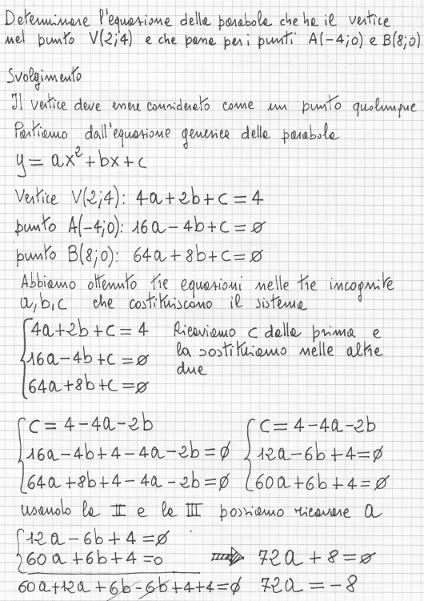 Determinare l'equazione della parabola che ha il vertice
nel punto V(2;4) e che passa per i punti A(-4;0) e B(8;0)
Svolgimento
Il vertice deve essere considerato come un punto qualunque
Partiamo dall'equazione generica della parabola
y = ax² + bx + c
Vertice V(2;4): 4a+2b+c=4
punto A(-4;0): 16a-4b+c=∅
punto B(8;0): 64a+8b+c=∅
Abbiamo ottenuto tre equazioni nelle tre incognite
a, b, c che costituiscono il sistema
{4a+2b+c=4 Ricaviamo c dalla prima e
16a-4b+c=∅ la sostituiamo nelle altre
64a+8b+c=∅ due
{C=4-4a-2b {C=4-4a-2b
16a-4b+4-4a-2b=∅ 12a-6b+4=∅
64a+8b+4-4a-2b=∅ 60a+6b+4=∅
usando la II e la III possiamo ricavare a
{12a-6b+4=∅
60a+6b+4=0 ⇒ 72a+8=∅
60a+12a+6b-6b+4+4=∅ 72a=-8